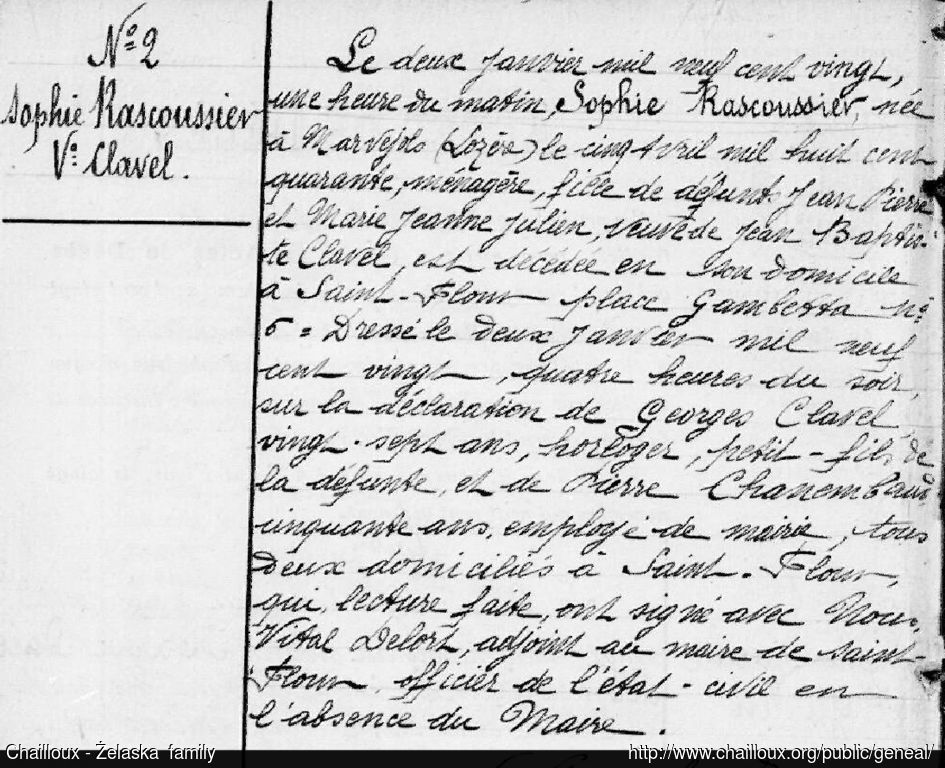 Nº 2
Sophie Rascoussier
Vᵉ Clavel.
Le deux Janvier mil neuf cent vingt,
une heure du matin, Sophie Rascoussier, née
à Marvejols (Lozère) le cinq Avril mil huit cent
quarante, ménagère, fille de défunts Jean Pierre
et Marie Jeanne Julien, veuve de Jean Baptis-
te Clavel, est décédée en son domicile
à Saint-Flour place Gambetta nº
6 = Dressé le deux Janvier mil neuf
cent vingt, quatre heures du soir,
sur la déclaration de Georges Clavel,
vingt-sept ans, horloger, petit-fils de
la défunte, et de Pierre
cinquante ans, employé de mairie, tous
deux domiciliés à Saint-Flour,
qui, lecture faite, ont signé avec Nous,
Vital Delort, adjoint au maire de Saint-
Flour, officier de l'état-civil en
l'absence du Maire.
Chailloux - Żelaska family
http://www.chailloux.org/public/geneal/